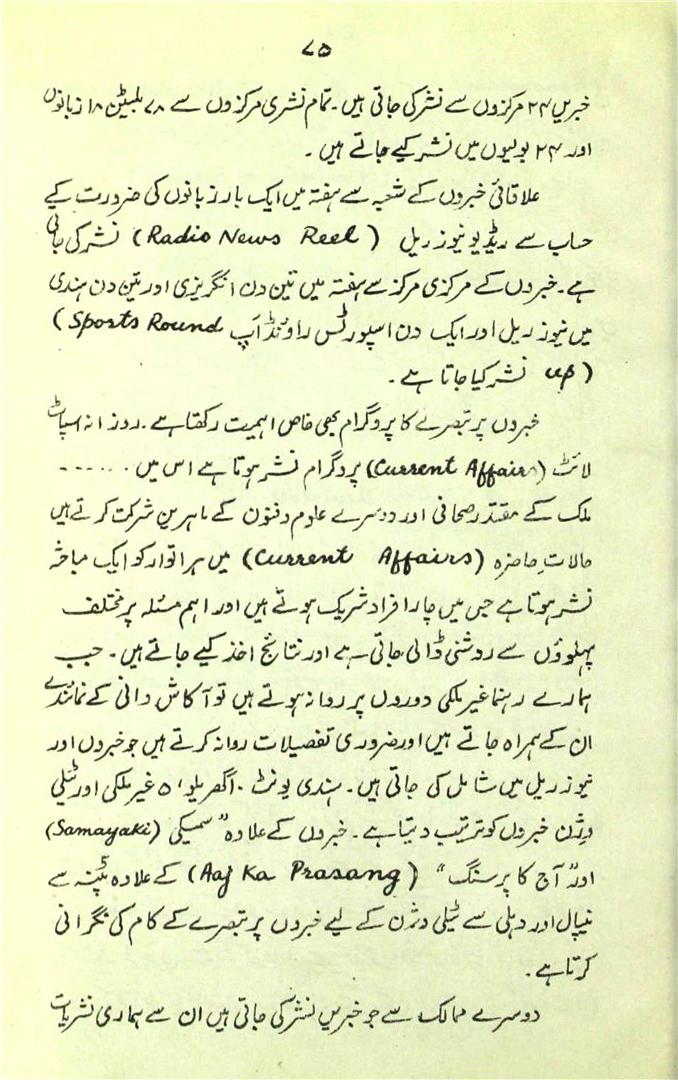 ۷۵
خبریں ۲۴ مرکزوں سے نشر کی جاتی ہیں۔ تمام نشری مرکزوں سے ۷۸ بلیٹن ۱۸ زبانوں
اور ۲۴ بولیوں میں نشر کیے جاتے ہیں۔
علاقائی خبروں کے شعبہ سے ہفتہ میں ایک بار زبانوں کی ضرورت کے
حساب سے ریڈیو نیوز ریل (Radio News Reel) نشر کی جاتی
ہے۔ خبروں کے مرکزی مرکز سے ہفتہ میں تین دن انگریزی اور تین دن ہندی
میں نیوز ریل اور ایک دن اسپورٹس راؤنڈ اَپ (Sports Round
up) نشر کیا جاتا ہے۔
خبروں پر تبصرے کا پروگرام بھی خاص اہمیت رکھتا ہے۔ روزانہ اسپاٹ
لائٹ (Current Affairs) پروگرام نشر ہوتا ہے اس میں ......
ملک کے مقتدر صحافی اور دوسرے علوم و فنون کے ماہرین شرکت کرتے ہیں
حالاتِ حاضرہ (Current Affairs) میں ہر اتوار کو ایک مباحثہ
نشر ہوتا ہے جس میں چار افراد شریک ہوتے ہیں اور اہم مسئلہ پر مختلف
پہلوؤں سے روشنی ڈالی جاتی ہے اور نتائج اخذ کیے جاتے ہیں۔ جب
ہمارے رہنما غیر ملکی دوروں پر روانہ ہوتے ہیں تو آکاش وانی کے نمائندے
ان کے ہمراہ جاتے ہیں اور ضروری تفصیلات روانہ کرتے ہیں جو خبروں اور
نیوز ریل میں شامل کی جاتی ہیں۔ ہندی یونٹ ۱۰ گھریلو، ۵ غیر ملکی اور ٹیلی
وِژن خبروں کو ترتیب دیتا ہے۔ خبروں کے علاوہ "سمیکی (Samayaki)
اور "آج کا پرسنگ" (Aaj Ka Prasang) کے علاوہ پٹنہ سے
نیپال اور دہلی سے ٹیلی وژن کے لیے خبروں پر تبصرے کے کام کی نگرانی
کرتا ہے۔
دوسرے ممالک سے جو خبریں نشر کی جاتی ہیں ان سے ہماری نشریات